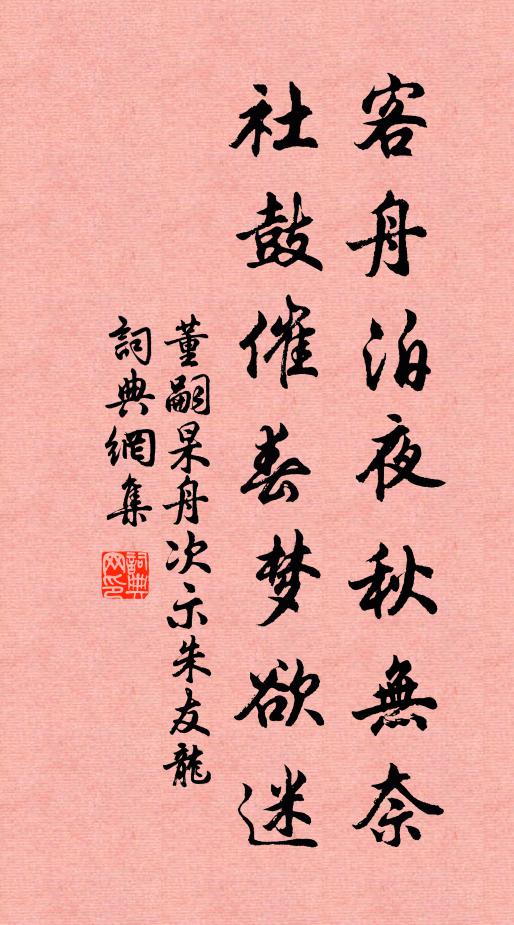 客舟泊夜秋無奈
社鼓催春梦欲迷
董嗣杲舟次示朱友龍
詞典網集
詞典網印